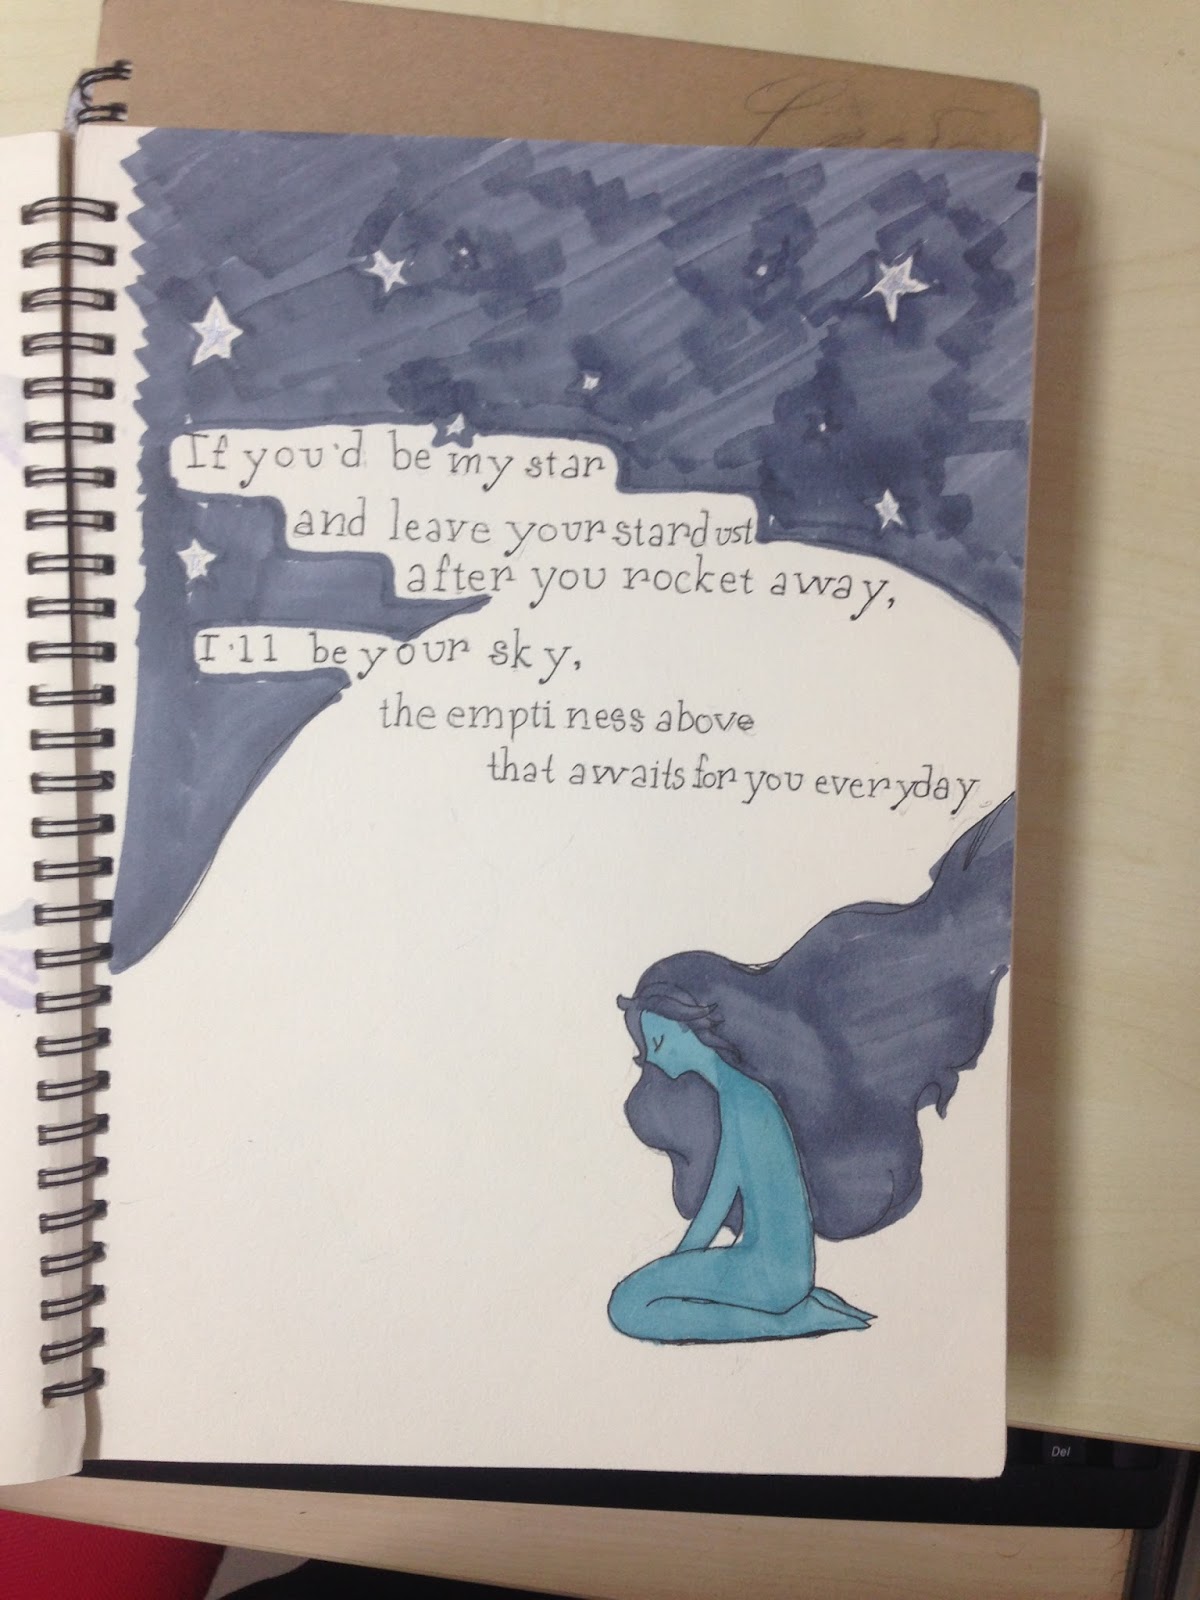 If you'd be my star
and leave your stardust
after you rocket away,
I'll be your sky,
the emptiness above
that awaits for you everyday.
Del